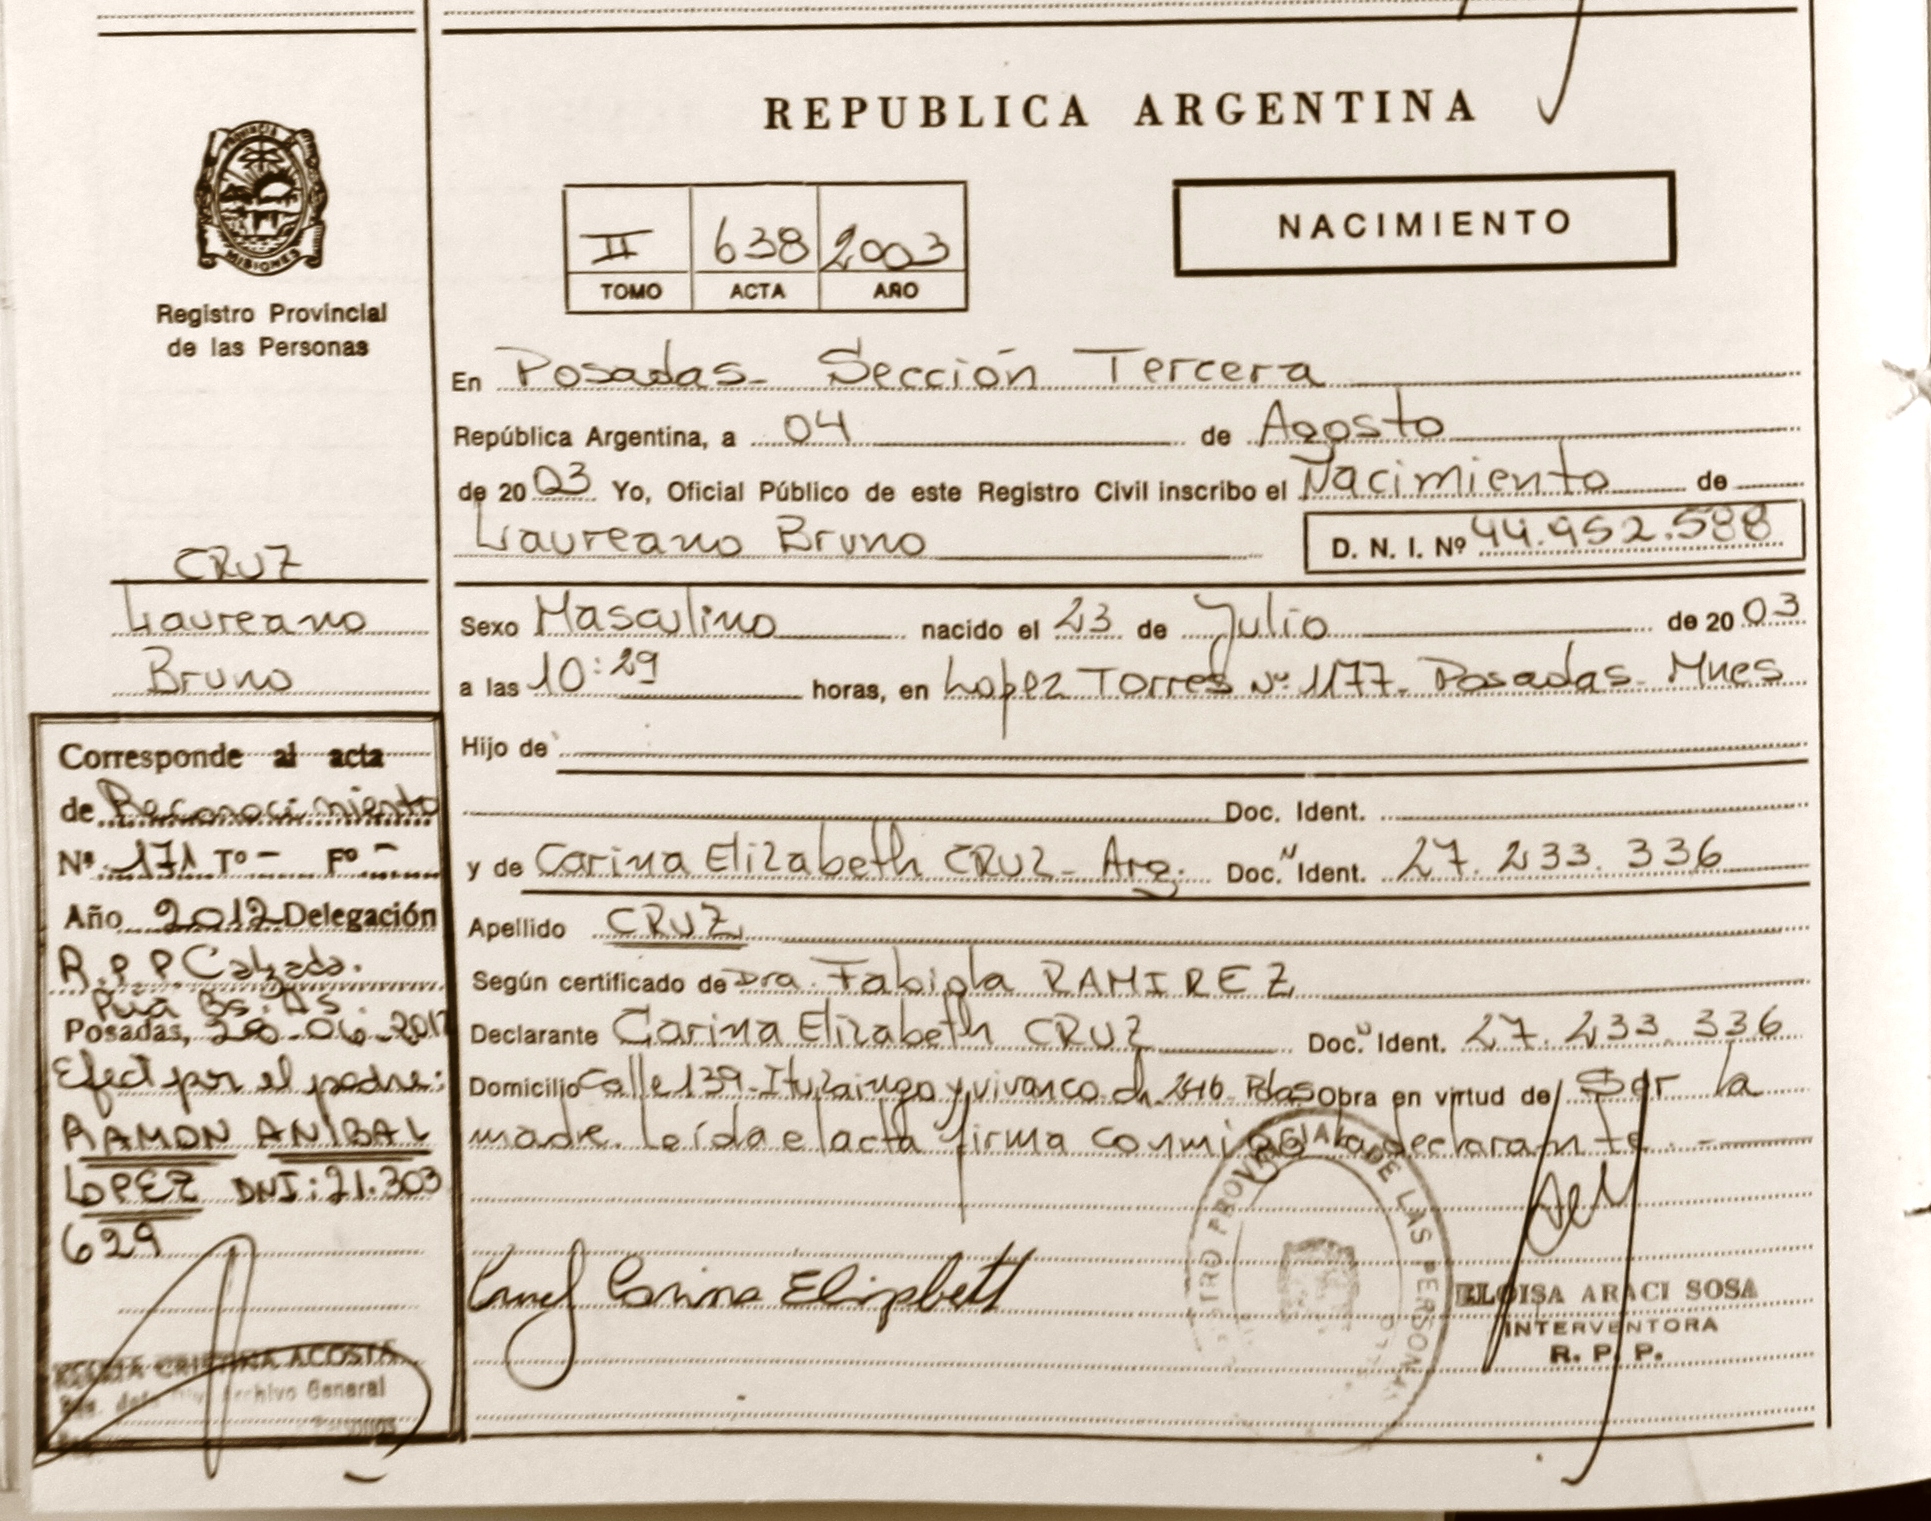 REPUBLICA ARGENTINA
PROVINCIA
MISIONES
Registro Provincial
de las Personas
II 638 2003
TOMO ACTA AÑO
NACIMIENTO
En Posadas- Sección Tercera
República Argentina, a 04 de Agosto
de 2003 Yo, Oficial Público de este Registro Civil inscribo el Nacimiento de
Laureano Bruno D. N. I. Nº 44.952.588
CRUZ
Laureano
Bruno
Sexo Masculino nacido el 23 de Julio de 2003
a las 10:29 horas, en Lopez Torres Nº 1177- Posadas- Mnes
Hijo de
Doc. Ident.
y de Carina Elizabeth CRUZ- Arg. Doc. Ident. 27.233.336
Apellido CRUZ
Según certificado de Dra. Fabiola RAMIREZ
Declarante Carina Elizabeth CRUZ Doc. Ident. 27.233.336
Domicilio Calle 139- Ituzaingo y vivanco ch. 246- Pdas Obra en virtud de Ser la
madre. Leída el acta firma conmigo la declarante.-
Corresponde al acta
de Reconocimiento
Nº 171 Tº - Fº -
Año 2012 Delegación
R.P.P Calzada.
Pcia Bs. As.
Posadas, 28-06-2012
Efect por el padre:
RAMON ANIBAL
LOPEZ DNI: 21.303
629
CRISTINA ACOSTA
Archivo General
Personas
Cruz Carina Elizabeth
PROVINCIAL DE LAS PERSONAS
ELOISA ARACI SOSA
INTERVENTORA
R. P. P.